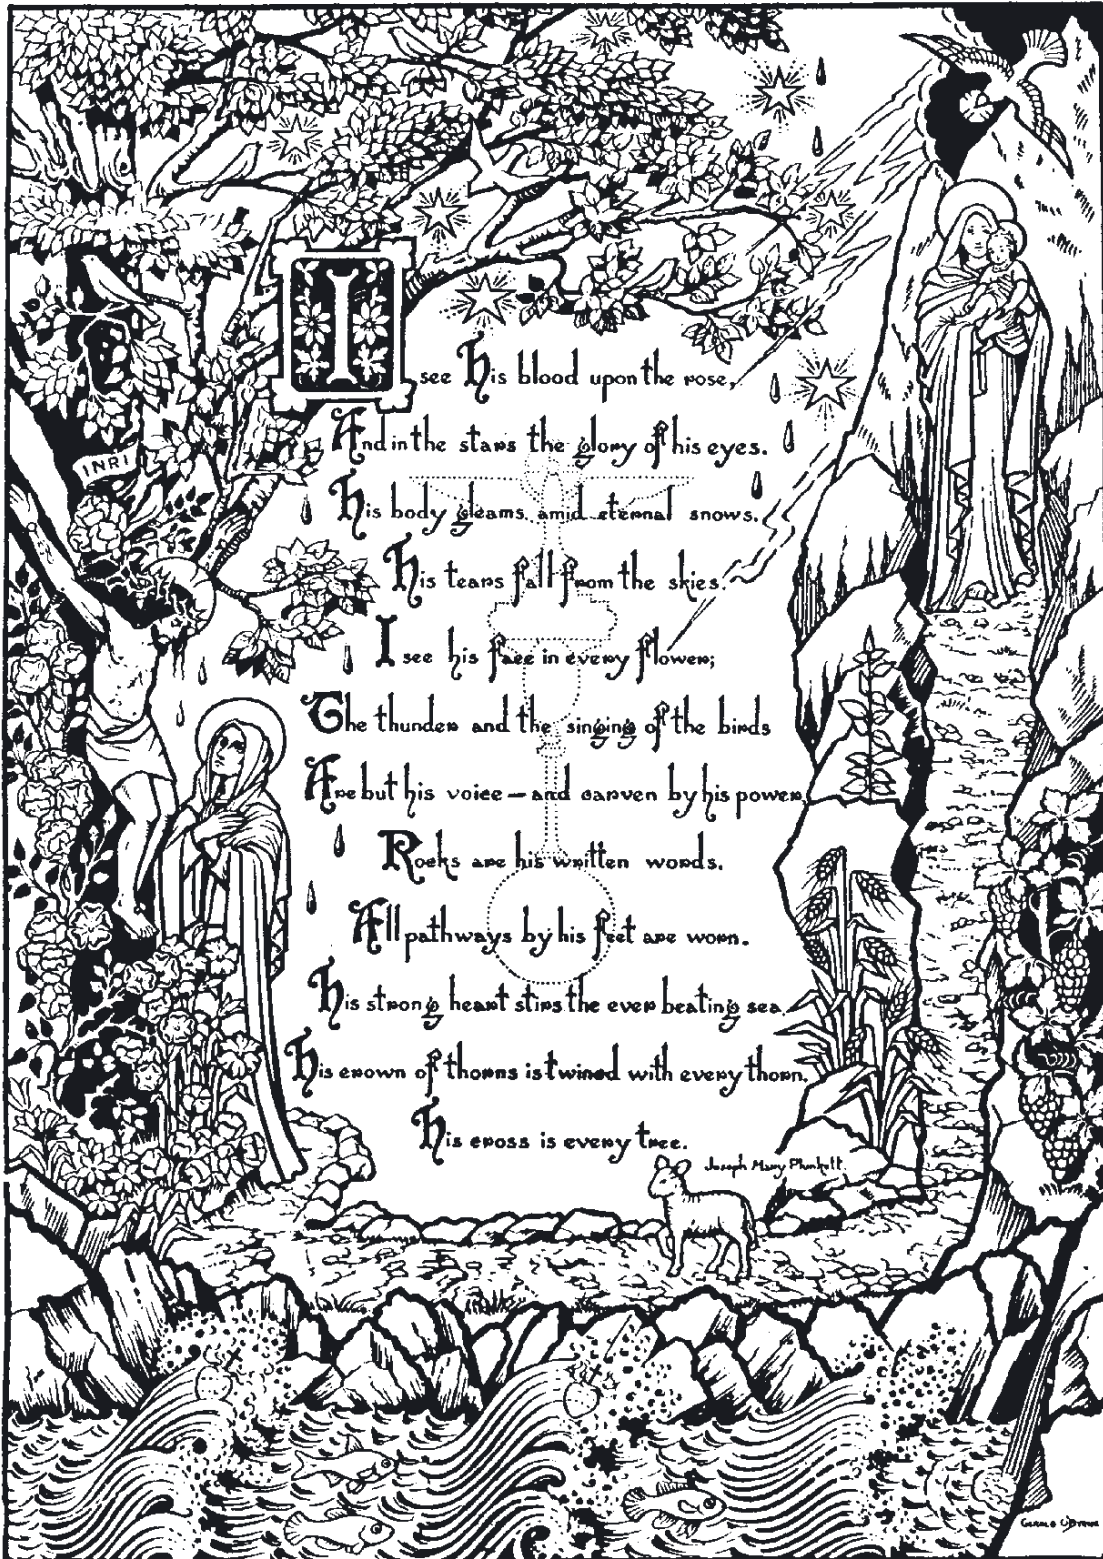 INRI
I see His blood upon the rose,
And in the stars the glory of his eyes.
His body gleams amid eternal snows.
His tears fall from the skies.
I see his face in every flower;
The thunder and the singing of the birds
Are but his voice — and carven by his power,
Rocks are his written words.
All pathways by his feet are worn.
His strong heart stirs the ever beating sea.
His crown of thorns is twined with every thorn.
His cross is every tree.
Joseph Mary Plunkett.
Gerald O'Byrne